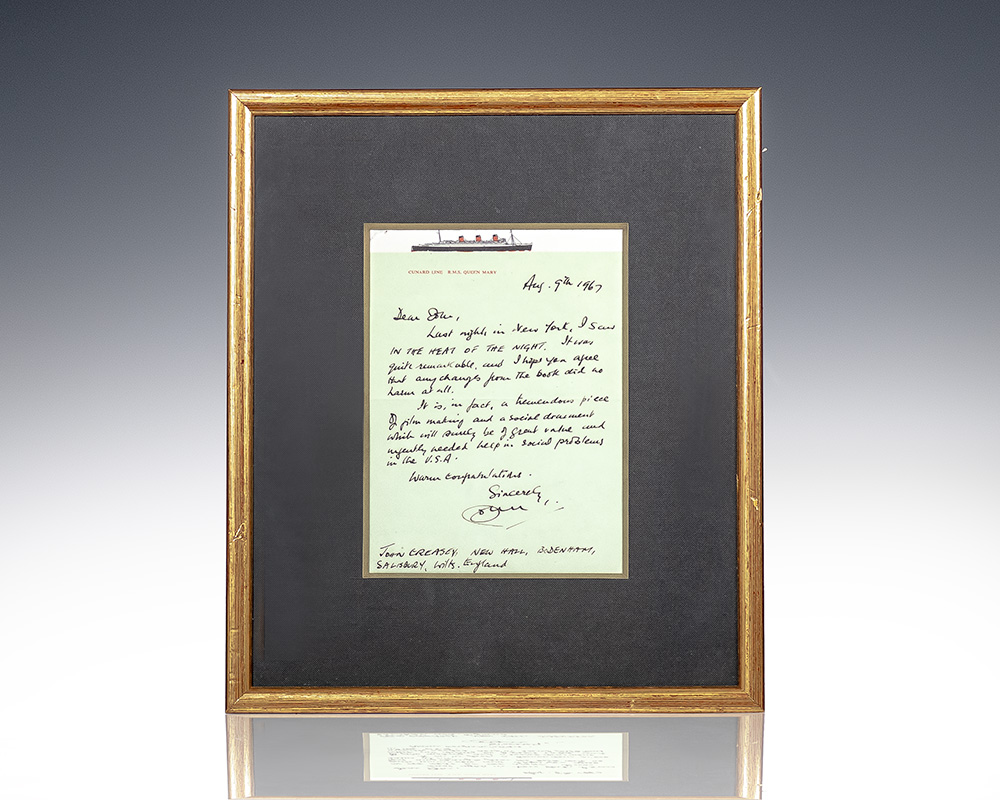 CUNARD LINE R.M.S. QUEEN MARY
Aug. 9th 1967
Dear John,
Last night, in New York, I saw
IN THE HEAT OF THE NIGHT. It was
quite remarkable, and I hope you agree
that any changes from the book did no
harm at all.
It is, in fact, a tremendous piece
of film making and a social document
which will surely be of great value and
urgently needed help in social problems
in the U.S.A.
Warm congratulations.
Sincerely,
John
JOHN CREASEY, NEW HALL, BODENHAM,
SALISBURY, Wilts. England